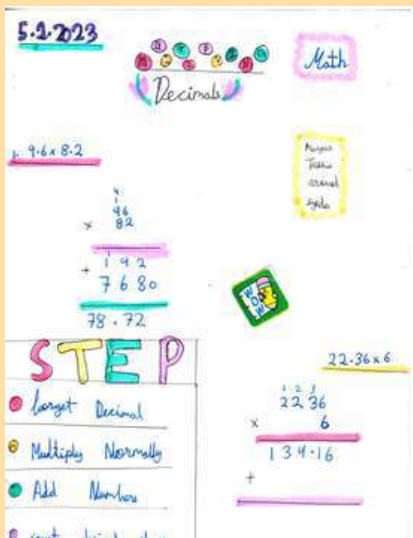 5.2.2023
Math
Decimals
1. 9.6 x 8.2
4
1
96
x 82
+ 192
7680
78.72
WOW
STEP
forget Decimal
Multiply Normally
Add Numbers
22.36 x 6
1 2 3
2236
x 6
134.16
+